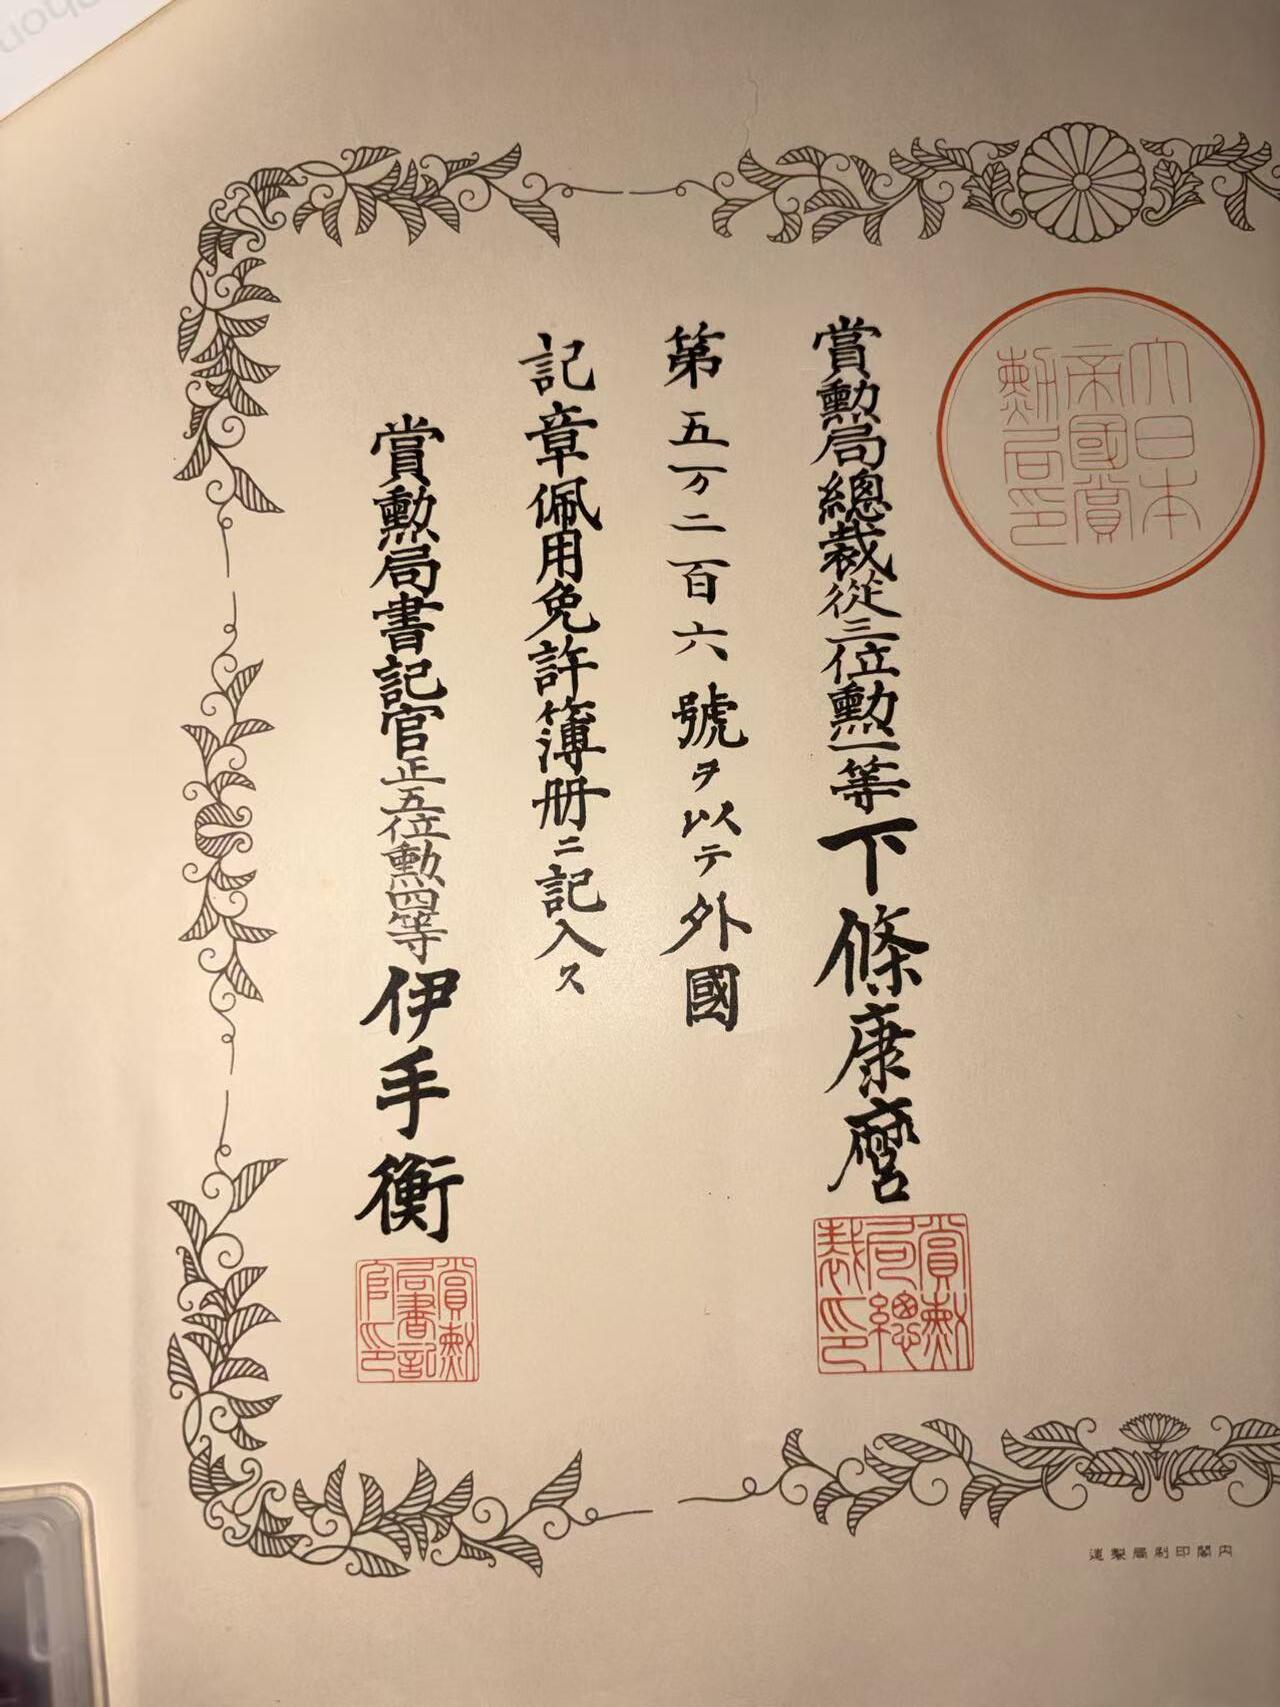 大日本
帝國賞
勲局印
賞勲局總裁從三位勲一等下條康麿
第五万二百六號ヲ以テ外國
記章佩用免許簿册ニ記入ス
賞勲局書記官正五位勲四等伊手衡
賞勲
局總
裁印
賞勲
局書記
官印
内閣印刷局製造